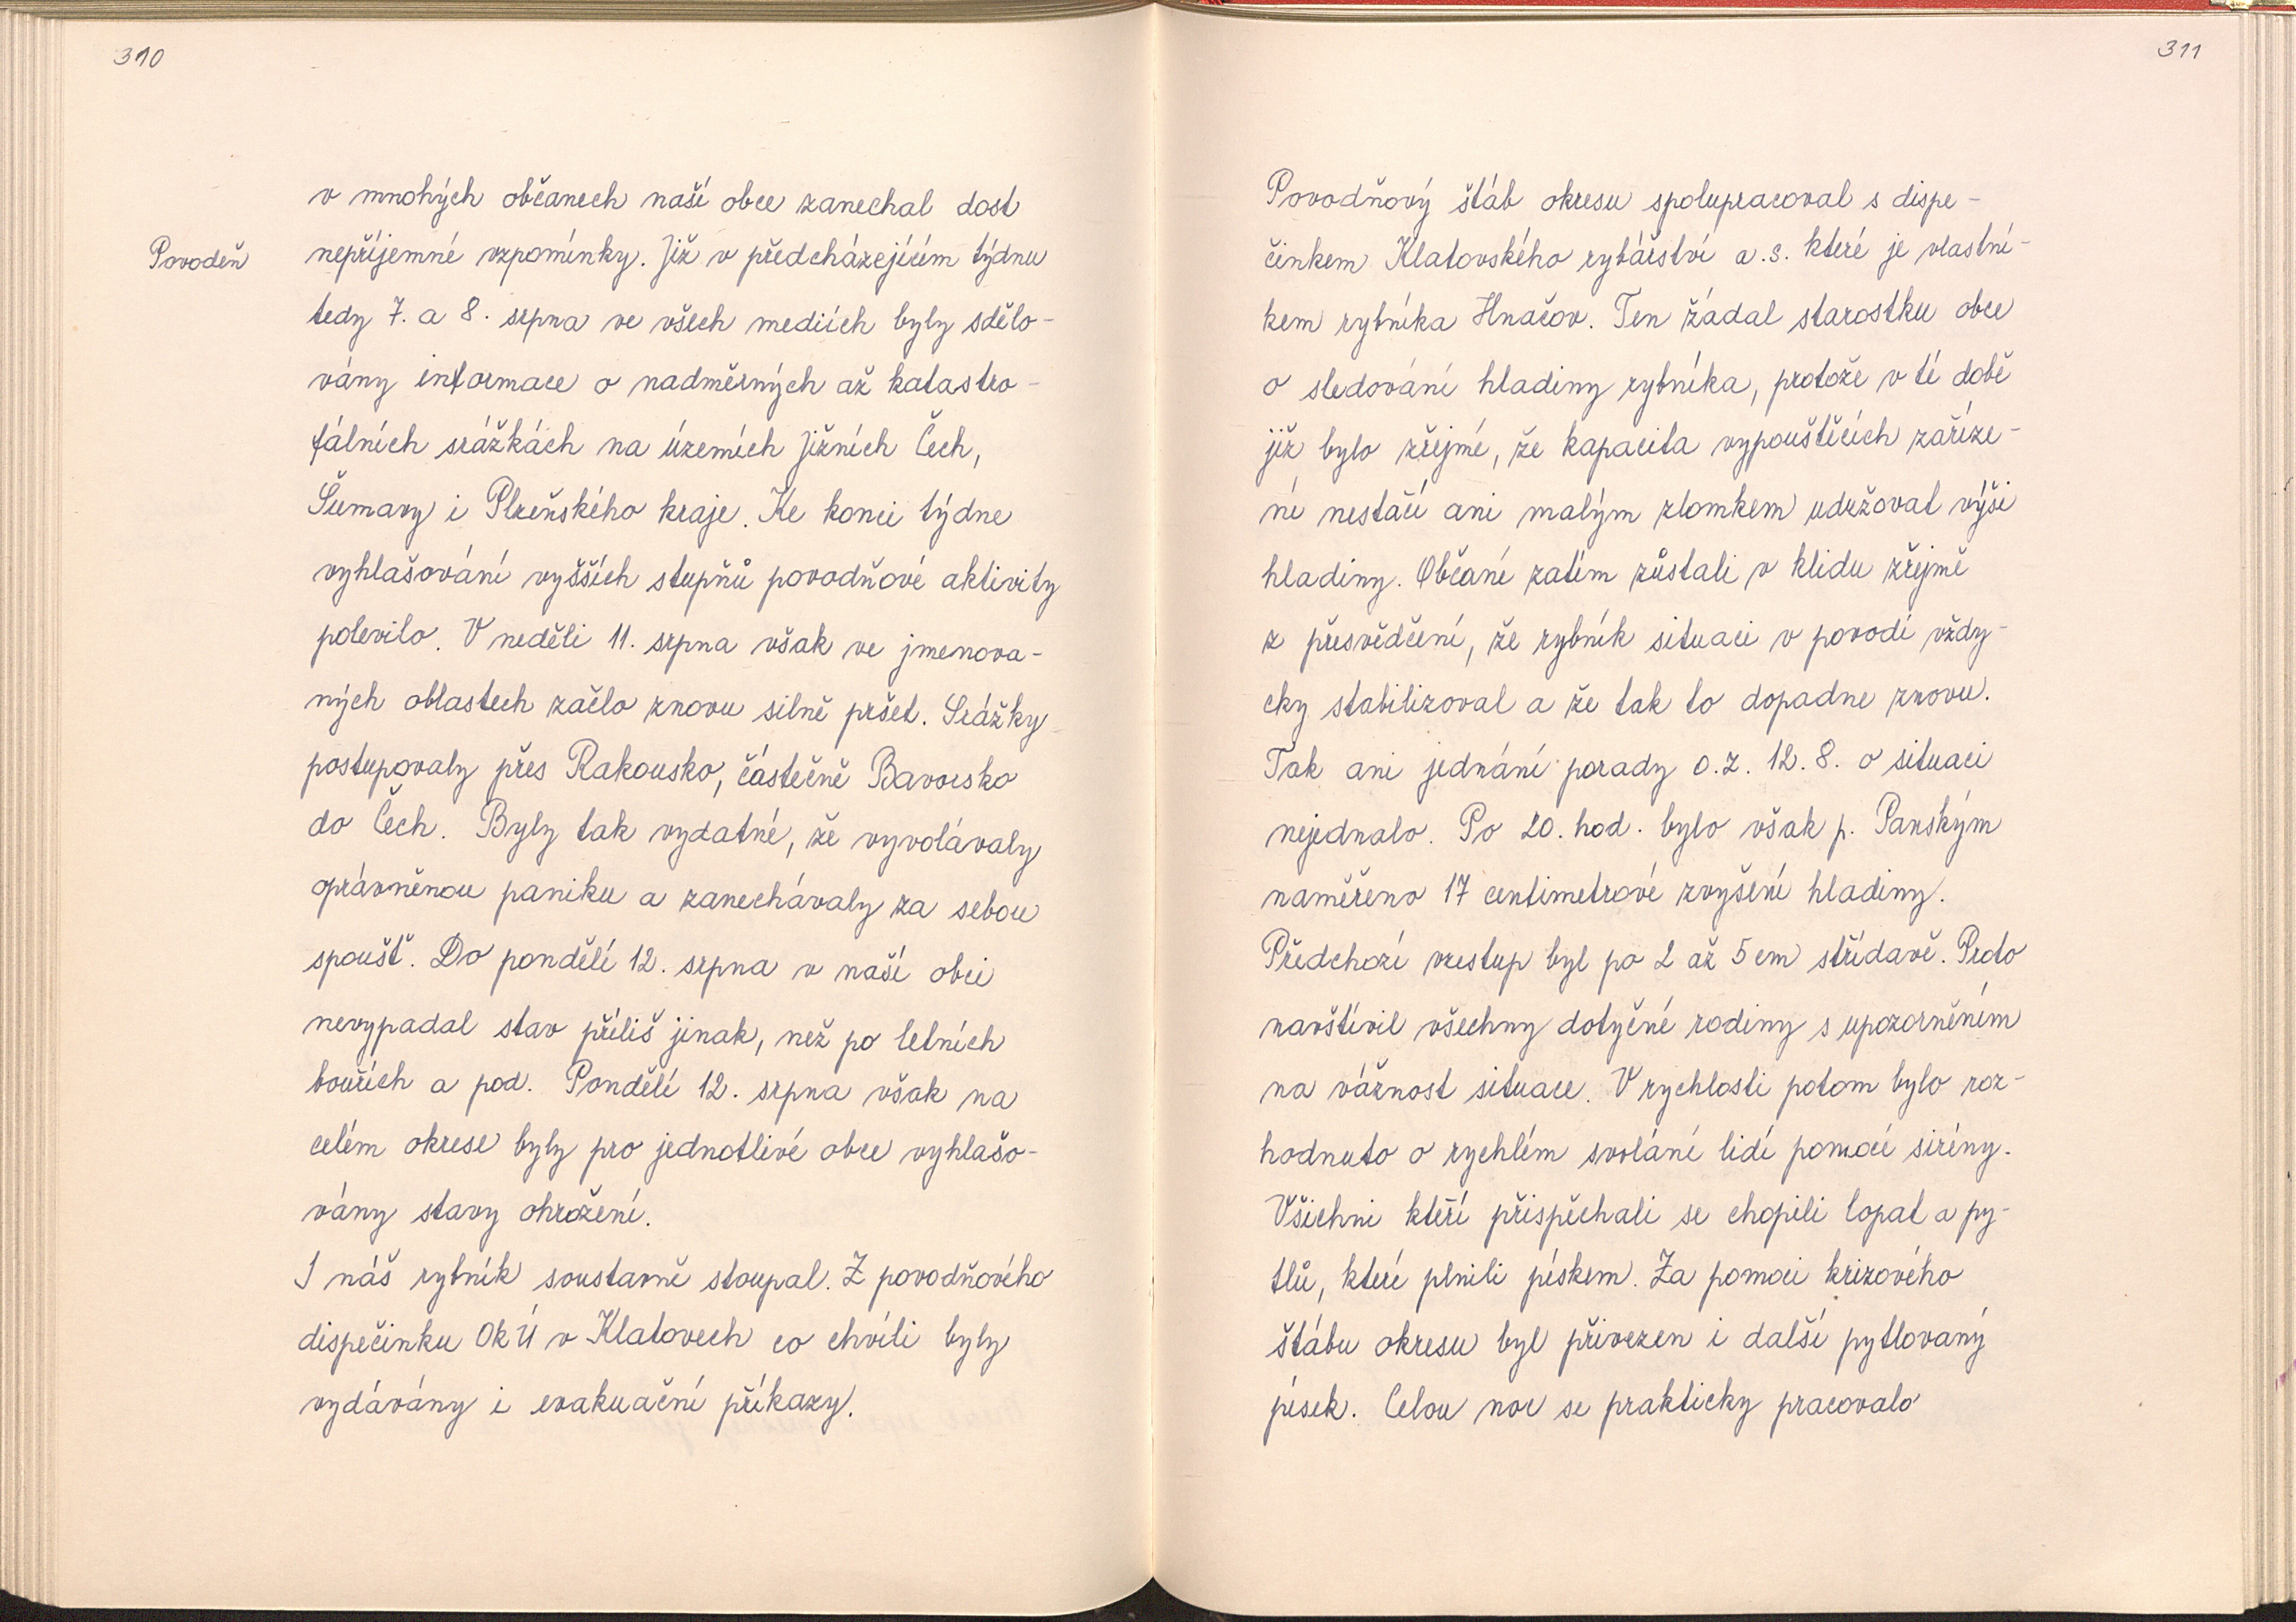 310
v mnohých občanech naší obce zanechal dost
Povodeň
nepříjemné vzpomínky. Již v předcházejícím týdnu
tedy 7. a 8. srpna ve všech mediích byly sdělo-
vány informace o nadměrných až katastro-
fálních srážkách na územích Jižních Čech,
Šumavy i Plzeňského kraje. Ke konci týdne
vyhlašování vyšších stupňů povodňové aktivity
polevilo. V neděli 11. srpna však ve jmenova-
ných oblastech začlo znovu silně pršet. Srážky
postupovaly přes Rakousko, částečně Bavorsko
do Čech. Byly tak vydatné, že vyvolávaly
oprávněnou paniku a zanechávaly za sebou
spoušť. Do pondělí 12. srpna v naší obci
nevypadal stav příliš jinak, než po letních
bouřích a pod. Pondělí 12. srpna však na
celém okrese byly pro jednotlivé obce vyhlašo-
vány stavy ohrožení.
I náš rybník soustavně stoupal. Z povodňového
dispečinku OkÚ v Klatovech co chvíli byly
vydávány i evakuační příkazy.
311
Povodňový štáb okresu spolupracoval s dispe-
činkem Klatovského rybářství a.s. které je vlastní-
kem rybníka Hnačov. Ten žádal starostku obce
o sledování hladiny rybníka, protože v té době
již bylo zřejmé, že kapacita vypouštěcích zaříze-
ní nestačí ani malým zlomkem udržovat výši
hladiny. Občané zatím zůstali v klidu zřejmě
z přesvědčení, že rybník situaci v povodí vždy-
cky stabilizoval a že tak to dopadne znovu.
Tak ani jednání porady o.z. 12. 8. o situaci
nejednalo. Po 20. hod. bylo však p. Panským
naměřeno 17 centimetrové zvyšení hladiny.
Předchozí vzestup byl po 2 až 5 cm střídavě. Proto
navštívil všechny dotyčné rodiny s upozorněním
na vážnost situace. V rychlosti potom bylo roz-
hodnuto o rychlém svolání lidí pomocí sirény.
Všichni kteří přispěchali se chopili lopat a py-
tlů, které plnili pískem. Za pomoci krizového
štábu okresu byl přivezen i další pytlovaný
písek. Celou noc se prakticky pracovalo